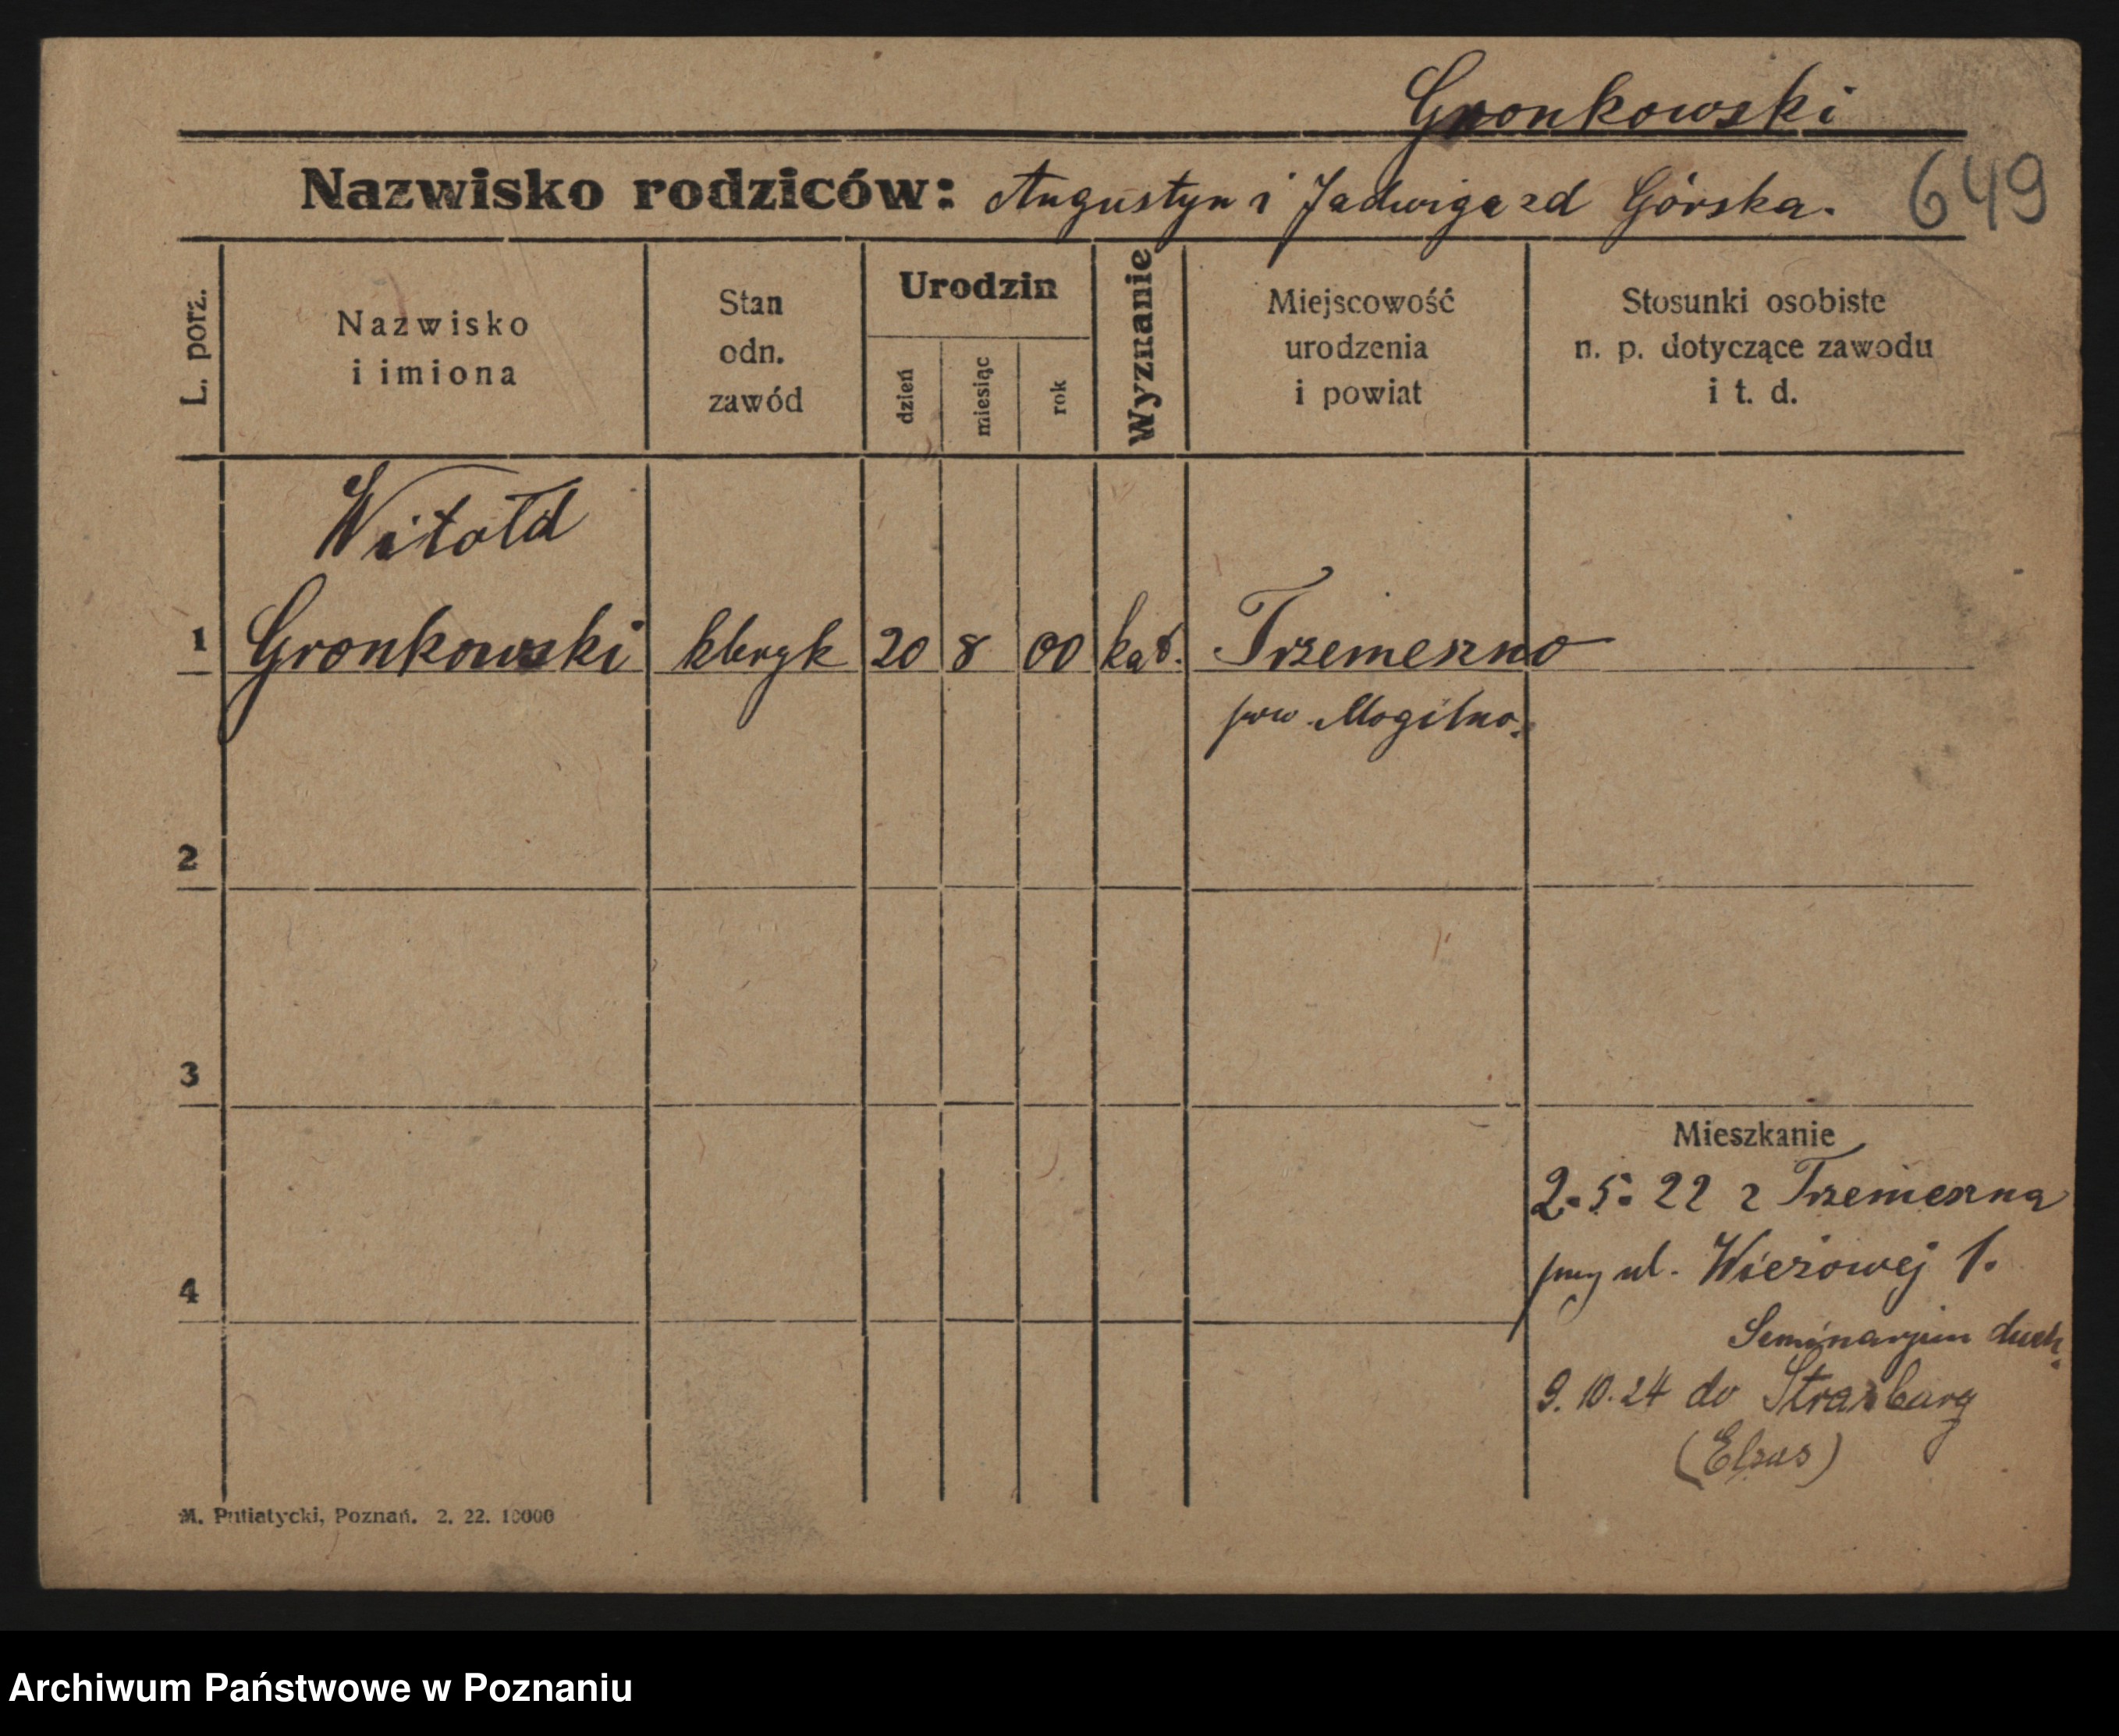 Gronkowski
Nazwisko rodziców: Augustyn i Jadwiga zd Górska.
649
L. porz.
Nazwisko
i imiona
Stan
odn.
zawód
Urodzin
dzień
miesiąc
rok
Wyznanie
Miejscowość
urodzenia
i powiat
Stosunki osobiste
n. p. dotyczące zawodu
i t. d.
Witołd
1 Gronkowski kleryk 20 8 00 kat. Trzemeszno
pow. Mogilno.
2
3
Mieszkanie
2.5.22 z Trzemeszna
przy ul. Wieżowej 1.
4
Seminarjum duch.
9.10.24 do Strasburg
(Elzas)
M. Putiatycki, Poznań. 2. 22. 10000
Archiwum Państwowe w Poznaniu